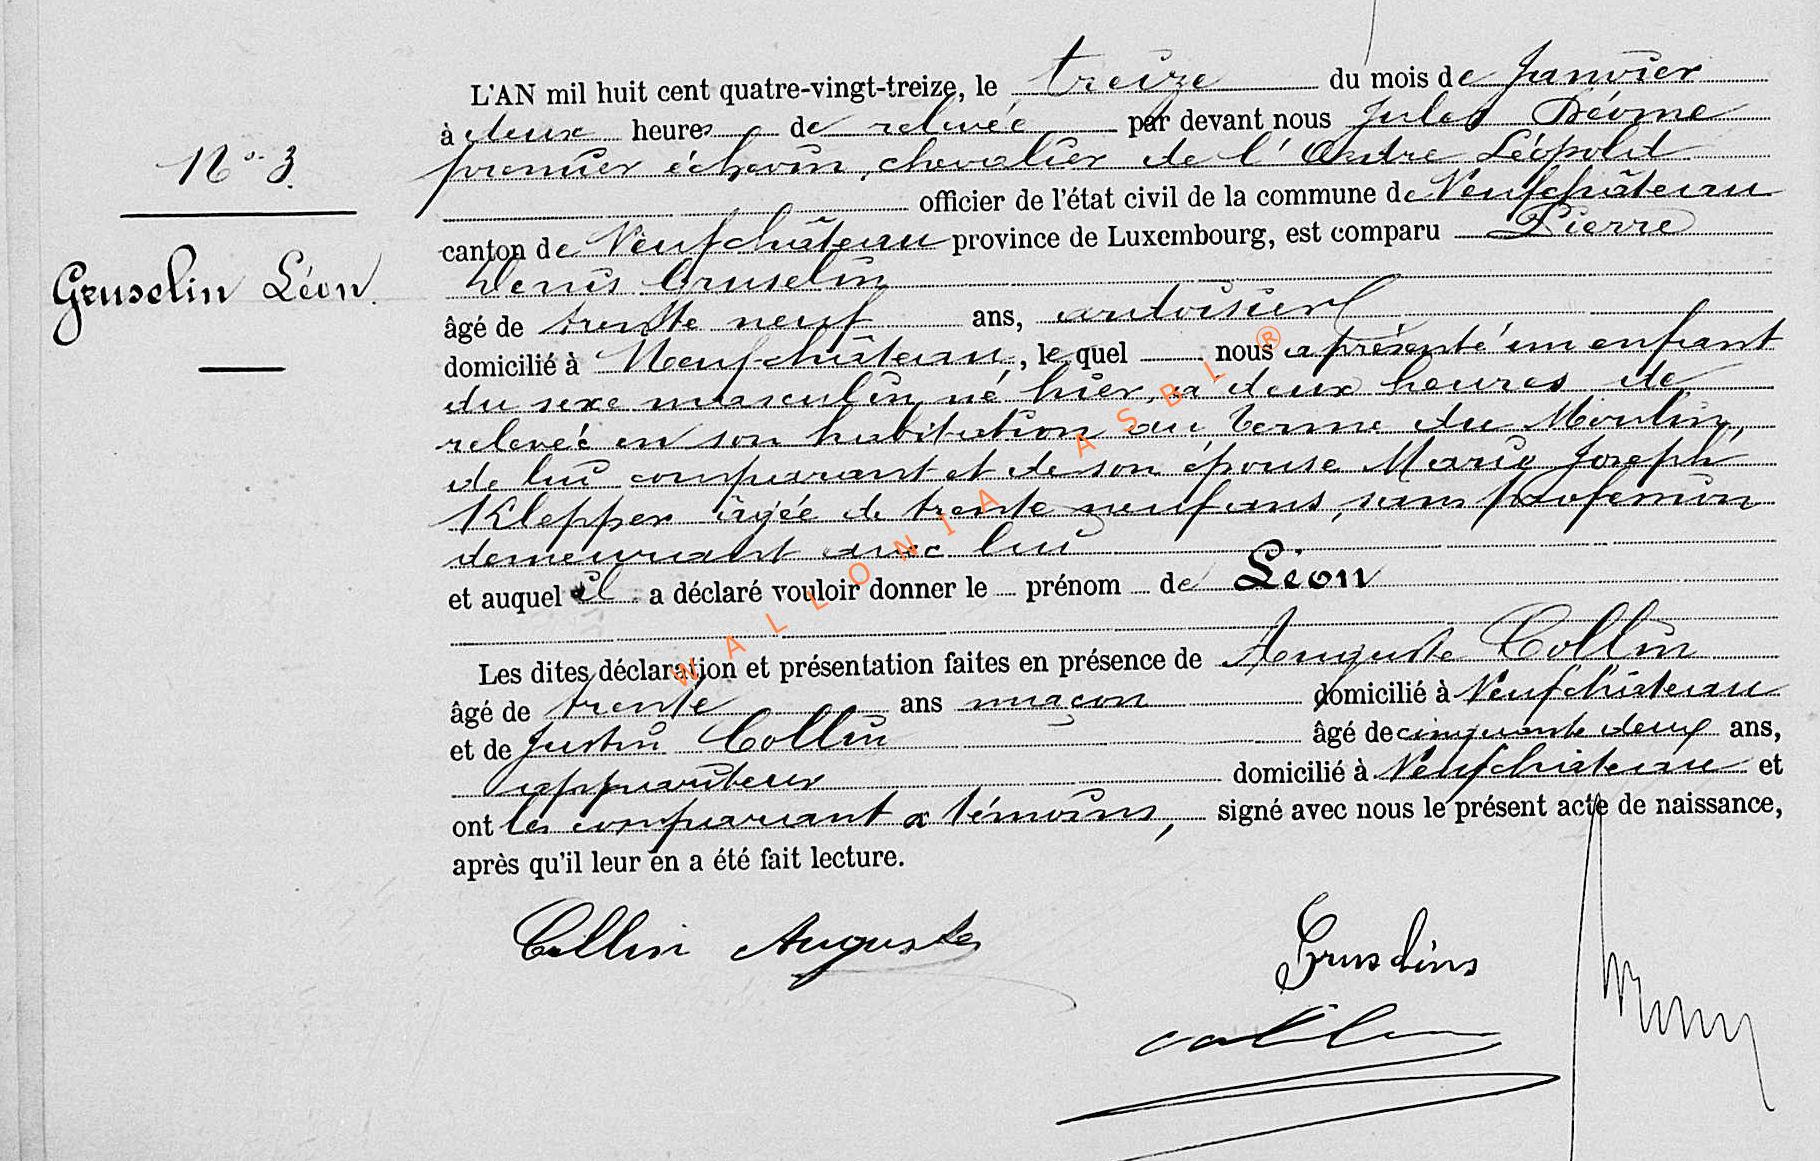 L'AN mil huit cent quatre-vingt-treize, le treize du mois de Janvier
à deux heures de relevée par devant nous Jules Déome
premier échevin, chevalier de l'Ordre Léopold
officier de l'état civil de la commune de Neufchâteau
canton de Neufchâteau province de Luxembourg, est comparu Pierre
Denis Gruselin
âgé de trente neuf ans, ardoisier
domicilié à Neufchâteau, le quel nous a présenté un enfant
du sexe masculin, né hier, à deux heures de
relevée en son habitation au Terme du Moulin,
de lui comparant et de son épouse Marie Joseph
Klepper âgée de trente neuf ans, sans profession
demeurant avec lui
et auquel il a déclaré vouloir donner le prénom de Léon
Les dites déclaration et présentation faites en présence de Auguste Collin
âgé de trente ans maçon domicilié à Neufchâteau
et de Justin Collin âgé de cinquante deux ans,
appariteur domicilié à Neufchâteau et
ont les comparant & témoins, signé avec nous le présent acte de naissance,
après qu'il leur en a été fait lecture.
No. 3.
Gruselin Léon.
Collin Auguste
Gruslins
Collin
WALLONIA ASBL ®